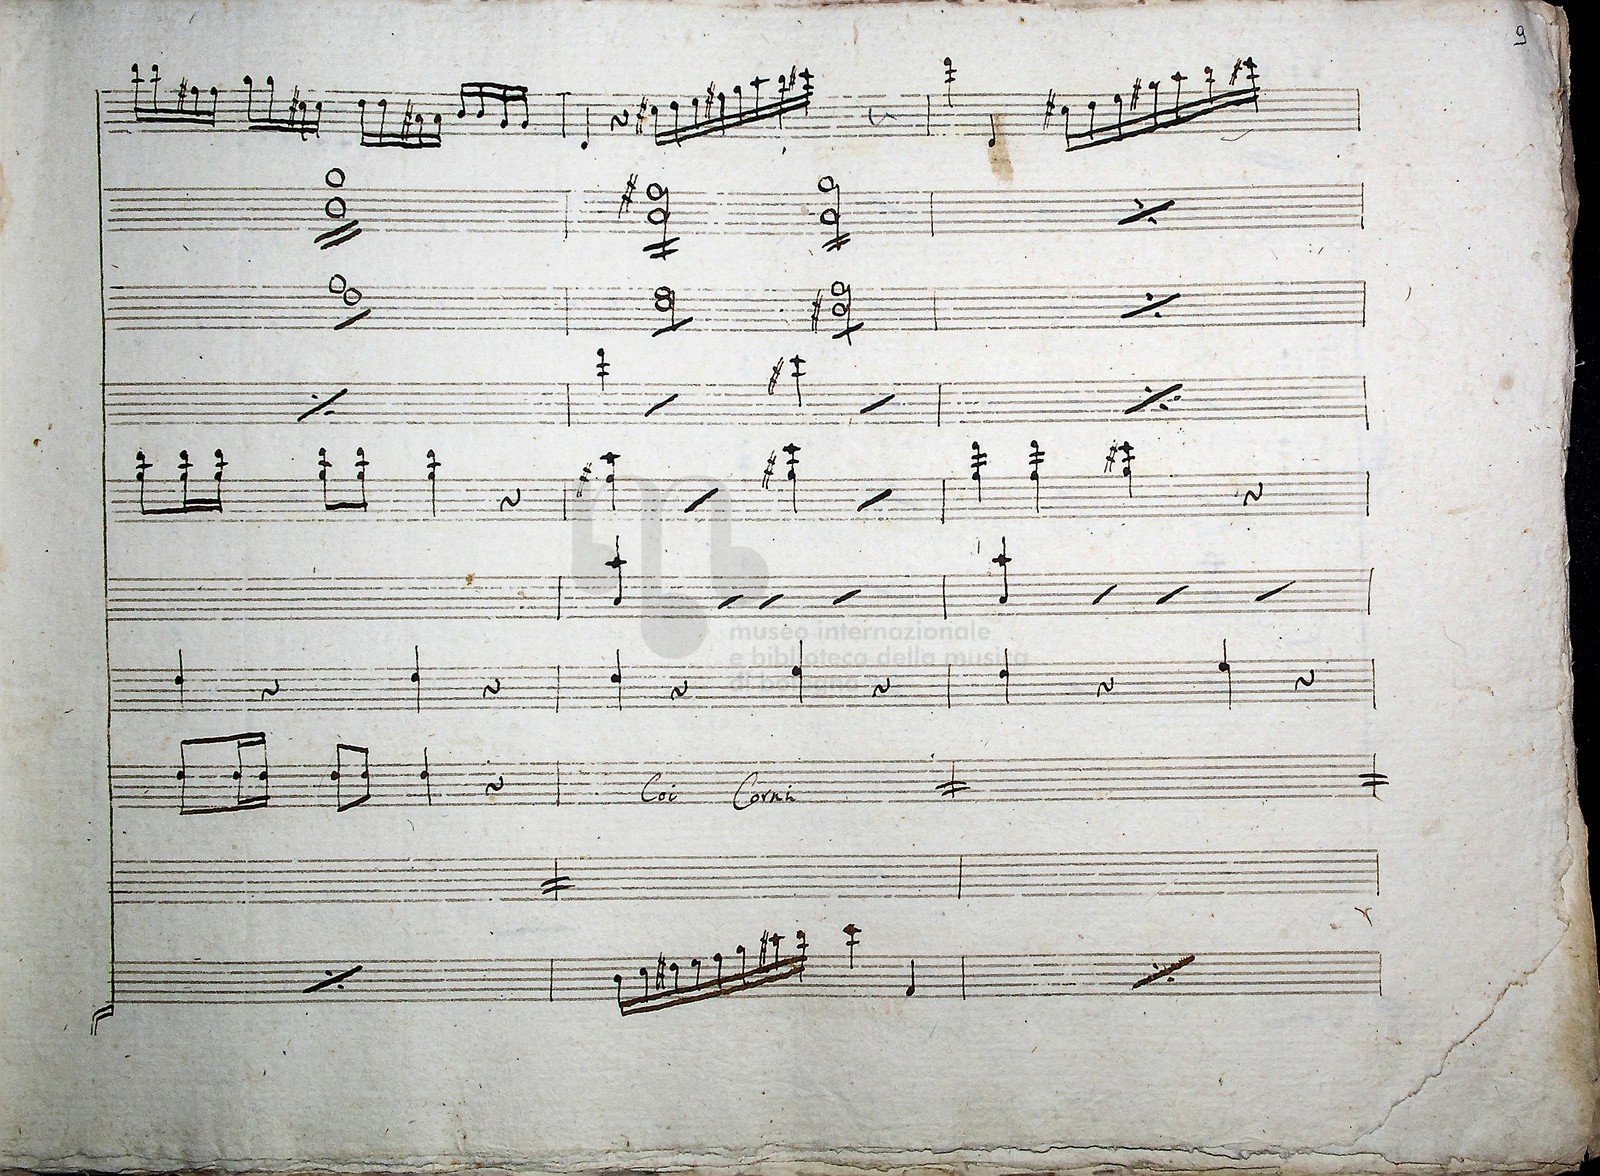 9
Coi Corni
museo internazionale
e biblioteca della musica
di bologna